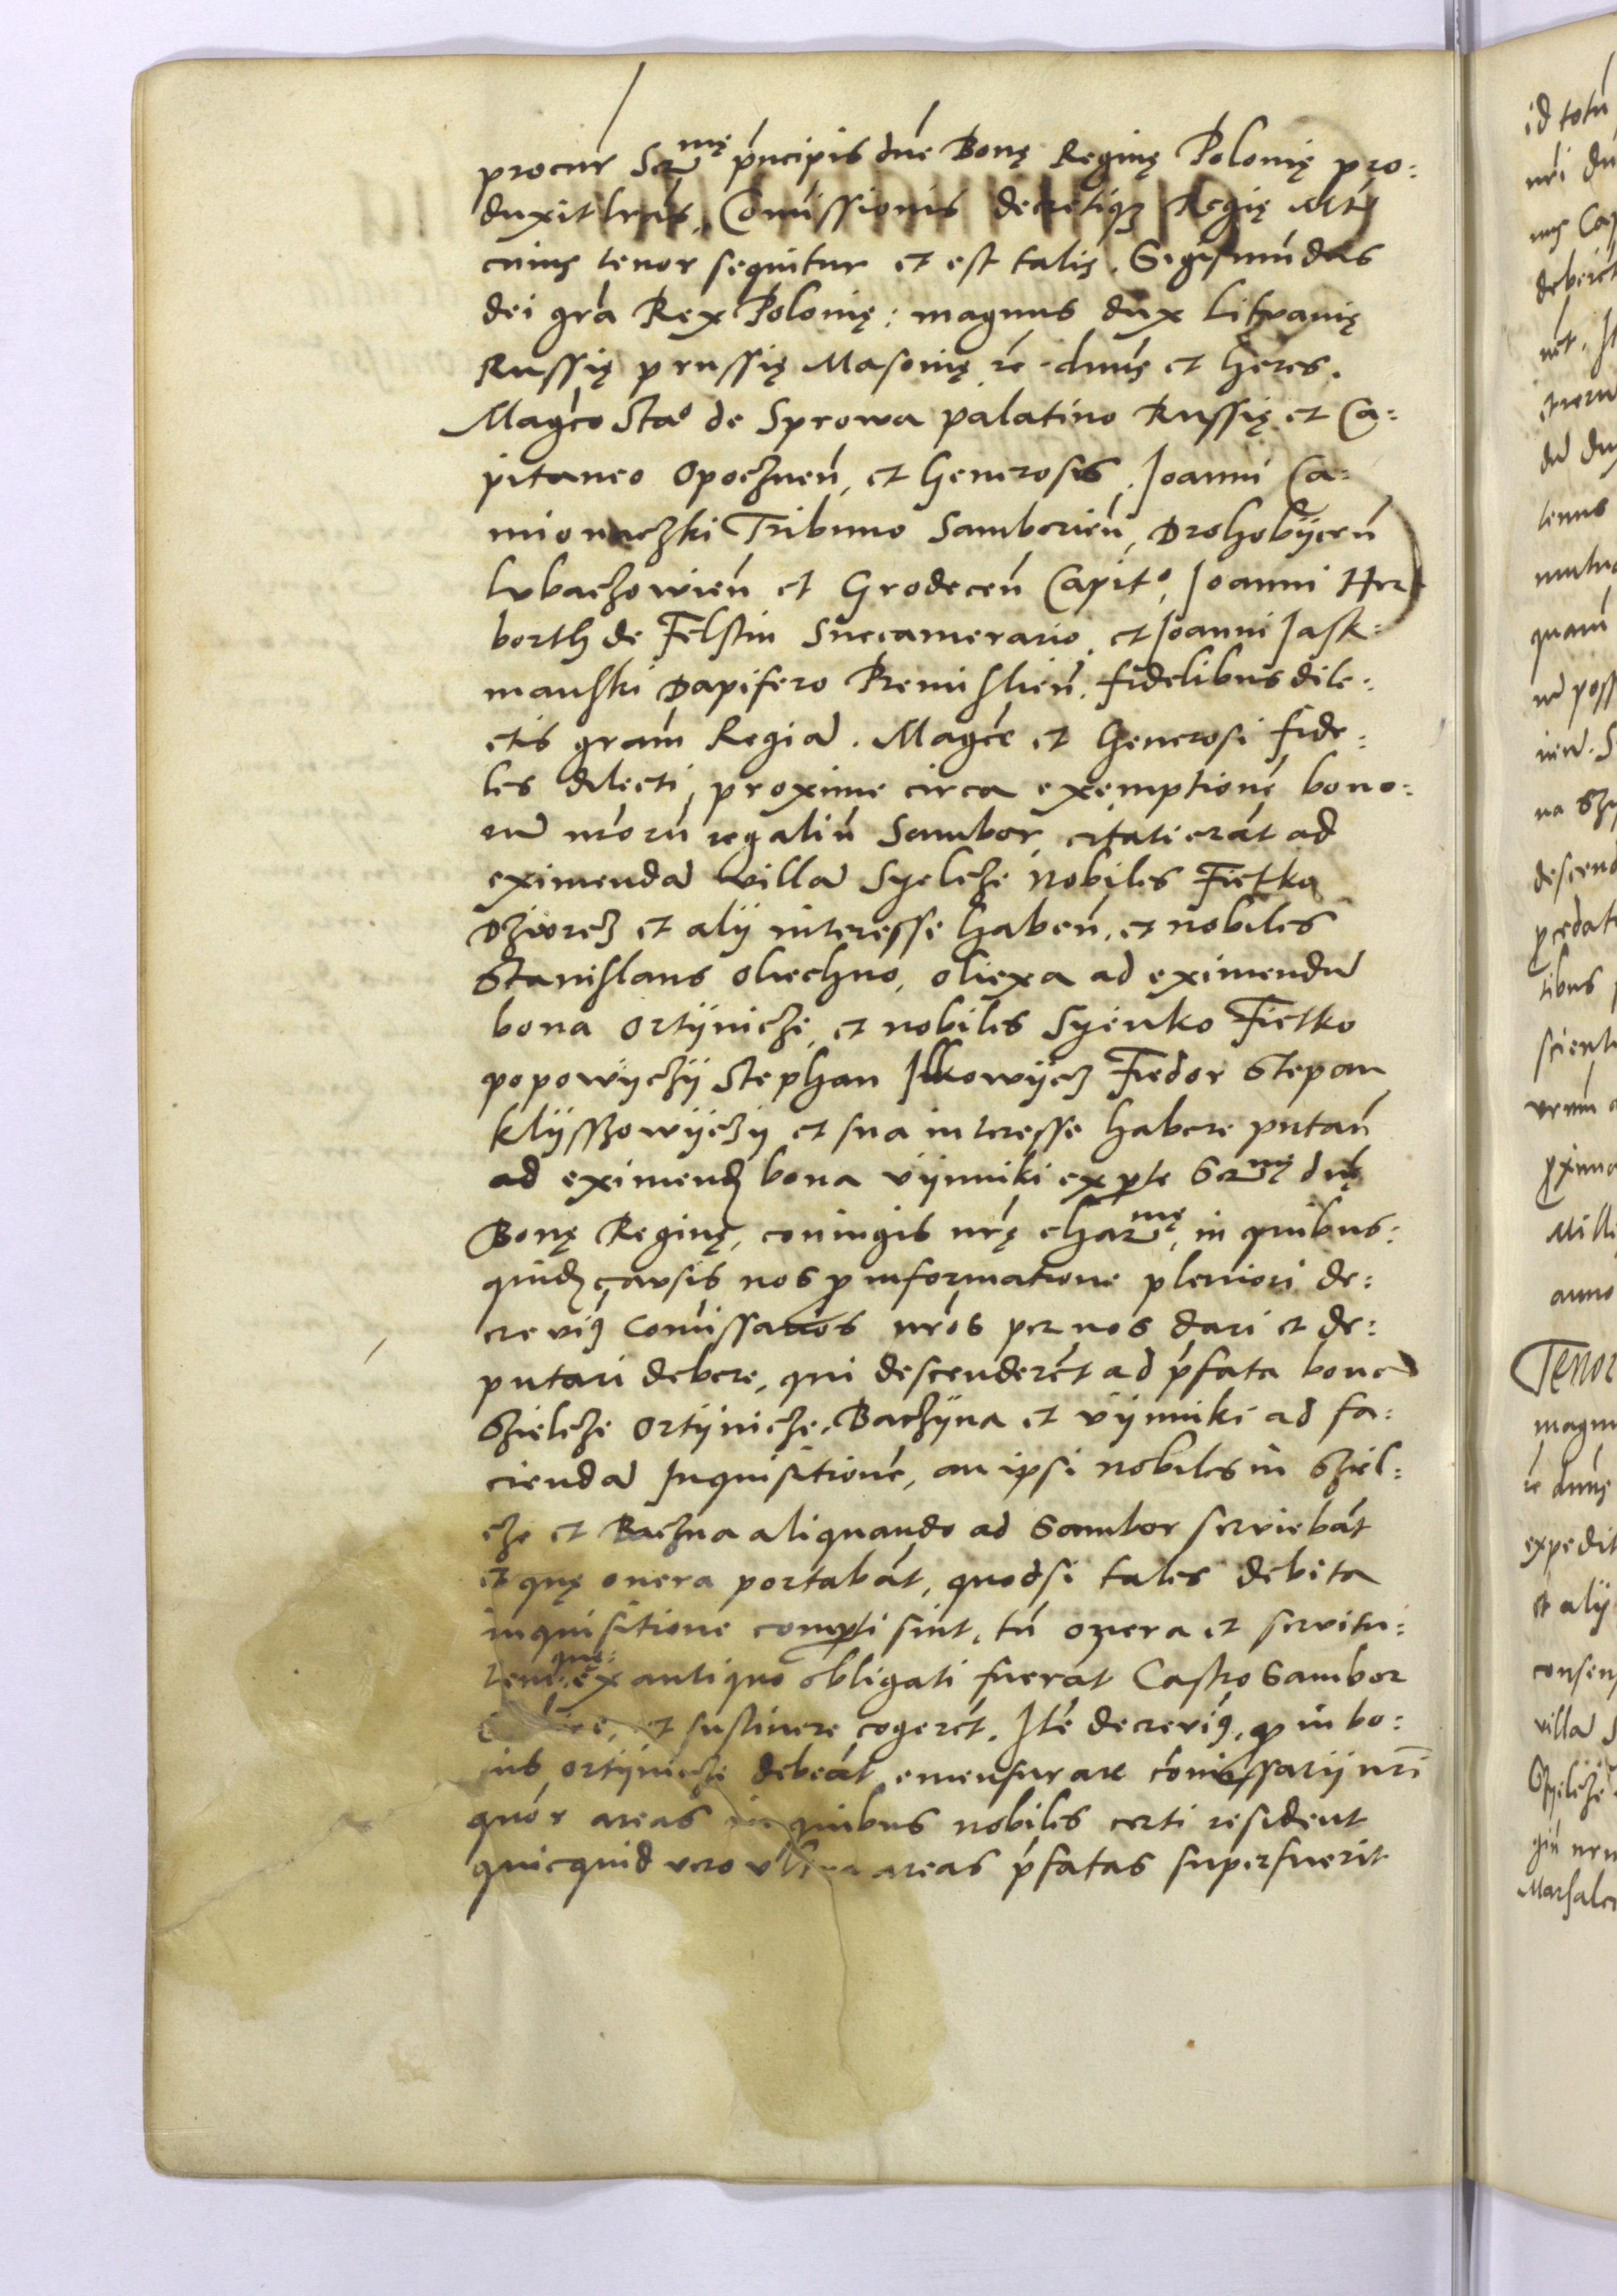 procur Ser^mę pncipis dne Bonę Reginę Polonię pro:
duxit lras Comissionis decretiqz Regię Mtis
cuius tenor sequitur et est talis. Sigismundus
dei gra Rex Polonię: magnus dux Lituanię
Russię prussię Masouię rc dnus et heres.
Magco Stao de Sprowa palatino Russię et Ca:
pitaneo Opocznen, et Generosis. Joanni Ca:
mionaczki Tribuno Samborien, Drohobÿcen
Lvbaczowien et Grodecen Capito, Joanni Her
borth de Felstin Succamerario, et Joanni Jask:
manski Dapifero Premislien. fidelibus dile:
ctis gram Regia. Magce et Generosi fide:
les dilecti, proxime circa exemptione bono:
ru nroru regaliu Sambor, citati erat ad
eximenda villa Syelcze Nobiles Fietko
Dzivrecz et alij interesse haben, et nobiles
Stanislaus Oliechno, Oliexa ad eximendu
bona Ortÿnicze, et nobiles Syenko Fietko
popowyczÿ Stephan Ilkowÿcz Fiedor Stepan
Klÿsszowÿczÿ et sua interesse habere putan
ad eximend bona Vÿnniki ex pte Ser^mę dnę
Bonę Reginę, coniugis nrę char^mę, in quibus:
quid causis nos p informatione pleniori de:
creuig Comissarios nros per nos dari et de:
putari debere, qui descenderet ad pfata bona
Szielcze Ortÿnicze, Baczÿna et Vÿnniki ad fa:
cienda Inquisitione, an ipsi nobiles in Sziel:
cze et Baczna aliquando ad Sambor seruiebat
et quę onera portabat, quodsi tales debita
inquisitione compti sint, tu onera et seruitu:
tem quę: ex antiquo obligati fuerat Castro Sambor
et sustinere cogeret. Ite decreuig, q in bo:
nis Ortÿnicze debeat emensurare comissarij nri
quor areas in quibus nobiles certi resident
quicquid vero vltra areas pfatas superfuerit